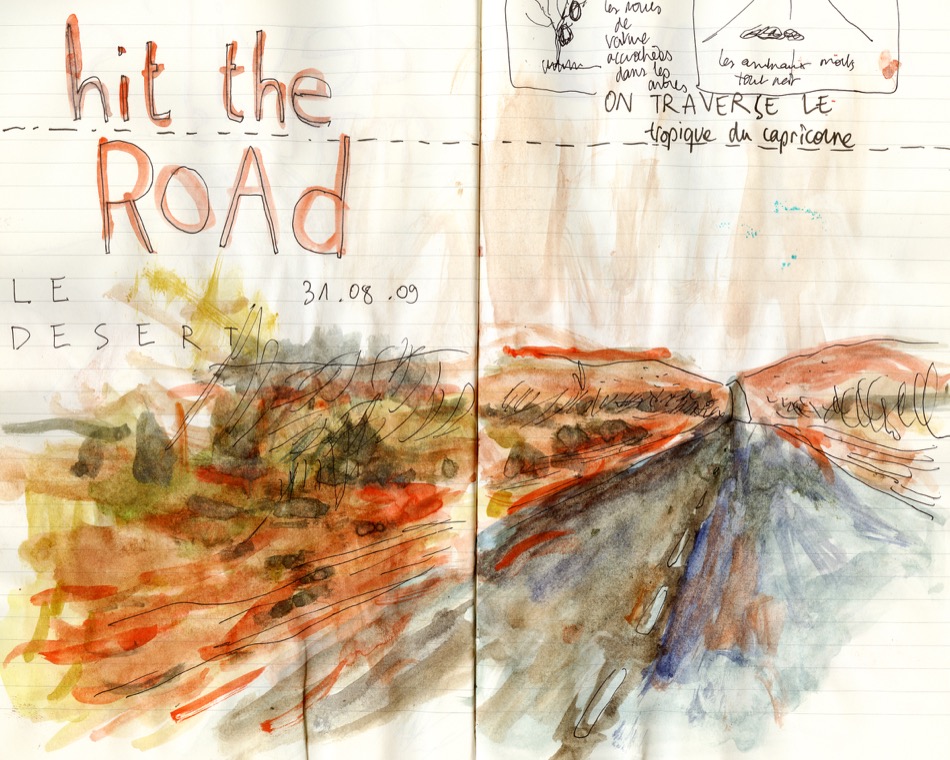 hit the
ROAd
LE
DESERT
31.08.09
les roues
de
voiture
accrochées
dans les
arbres
les animaux morts
tout noir
ON TRAVERSE LE
tropique du capricorne